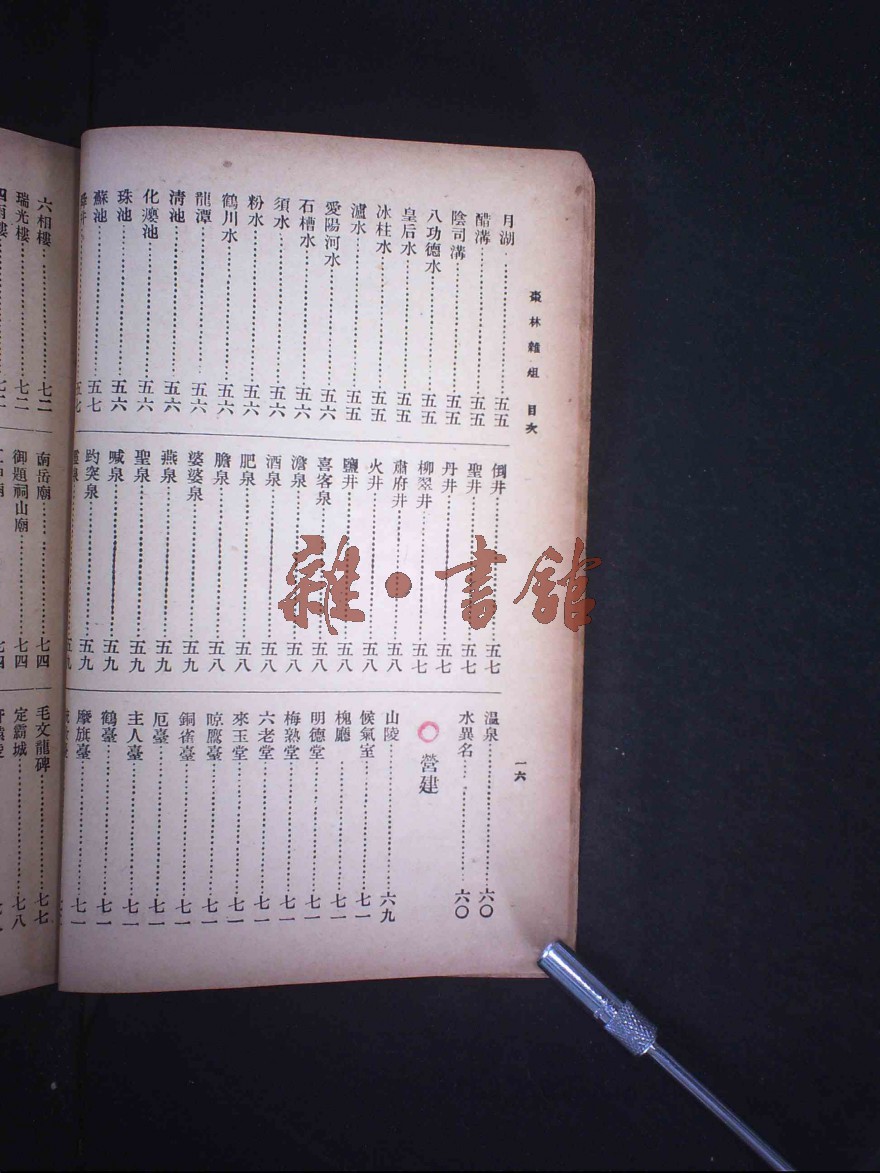 棗林雜俎 目次
一六
月湖 五五
醋溝 五五
陰司溝 五五
八功德水 五五
皇后水 五五
冰柱水 五五
瀘水 五五
愛陽河水 五六
石槽水 五六
須水 五六
粉水 五六
鶴川水 五六
龍潭 五六
清池 五六
化瘿池 五六
珠池 五六
蘇池 五七
倒井 五七
聖井 五七
丹井 五七
柳翠井 五七
肅府井 五八
火井 五八
鹽井 五八
喜客泉 五八
澹泉 五八
酒泉 五八
肥泉 五八
膽泉 五八
婆婆泉 五九
燕泉 五九
聖泉 五九
喊泉 五九
趵突泉 五九
溫泉 六〇
水異名 六〇
營建
山陵 六九
候氣室 七一
槐廳 七一
明德堂 七一
梅熟堂 七一
六老堂 七一
來玉堂 七一
晾鷹臺 七一
銅雀臺 七一
厄臺 七一
主人臺 七一
鶴臺 七一
摩旗臺 七一
六相樓 七二
瑞光樓 七二
南岳廟 七四
御題祠山廟 七四
毛文龍碑 七七
定霸城 七八
雜·書館